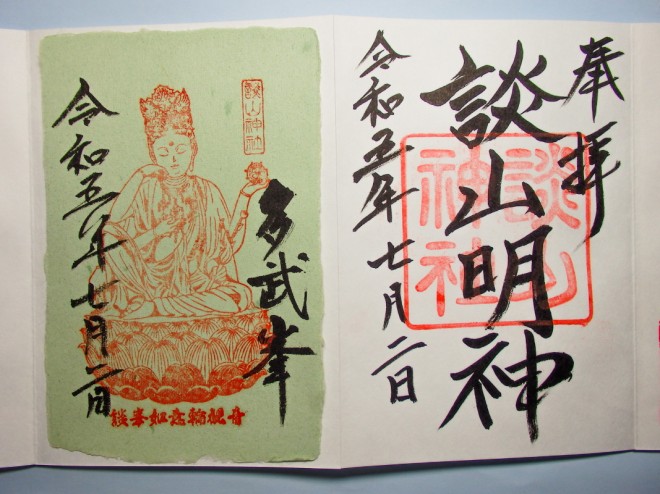 奉拝
談山明神
談山神社
令和五年七月二日
談山神社
多武峯
令和五年七月二日
談峯如意輪観音